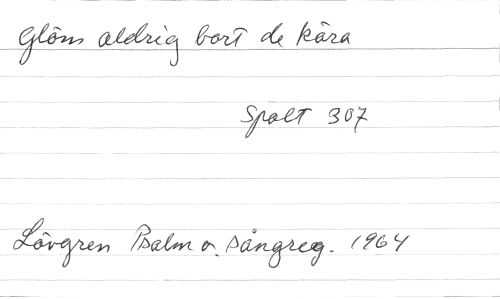 Glöm aldrig bort de kära
Spalt 307
Lövgren Psalm o. sångreg. 1964